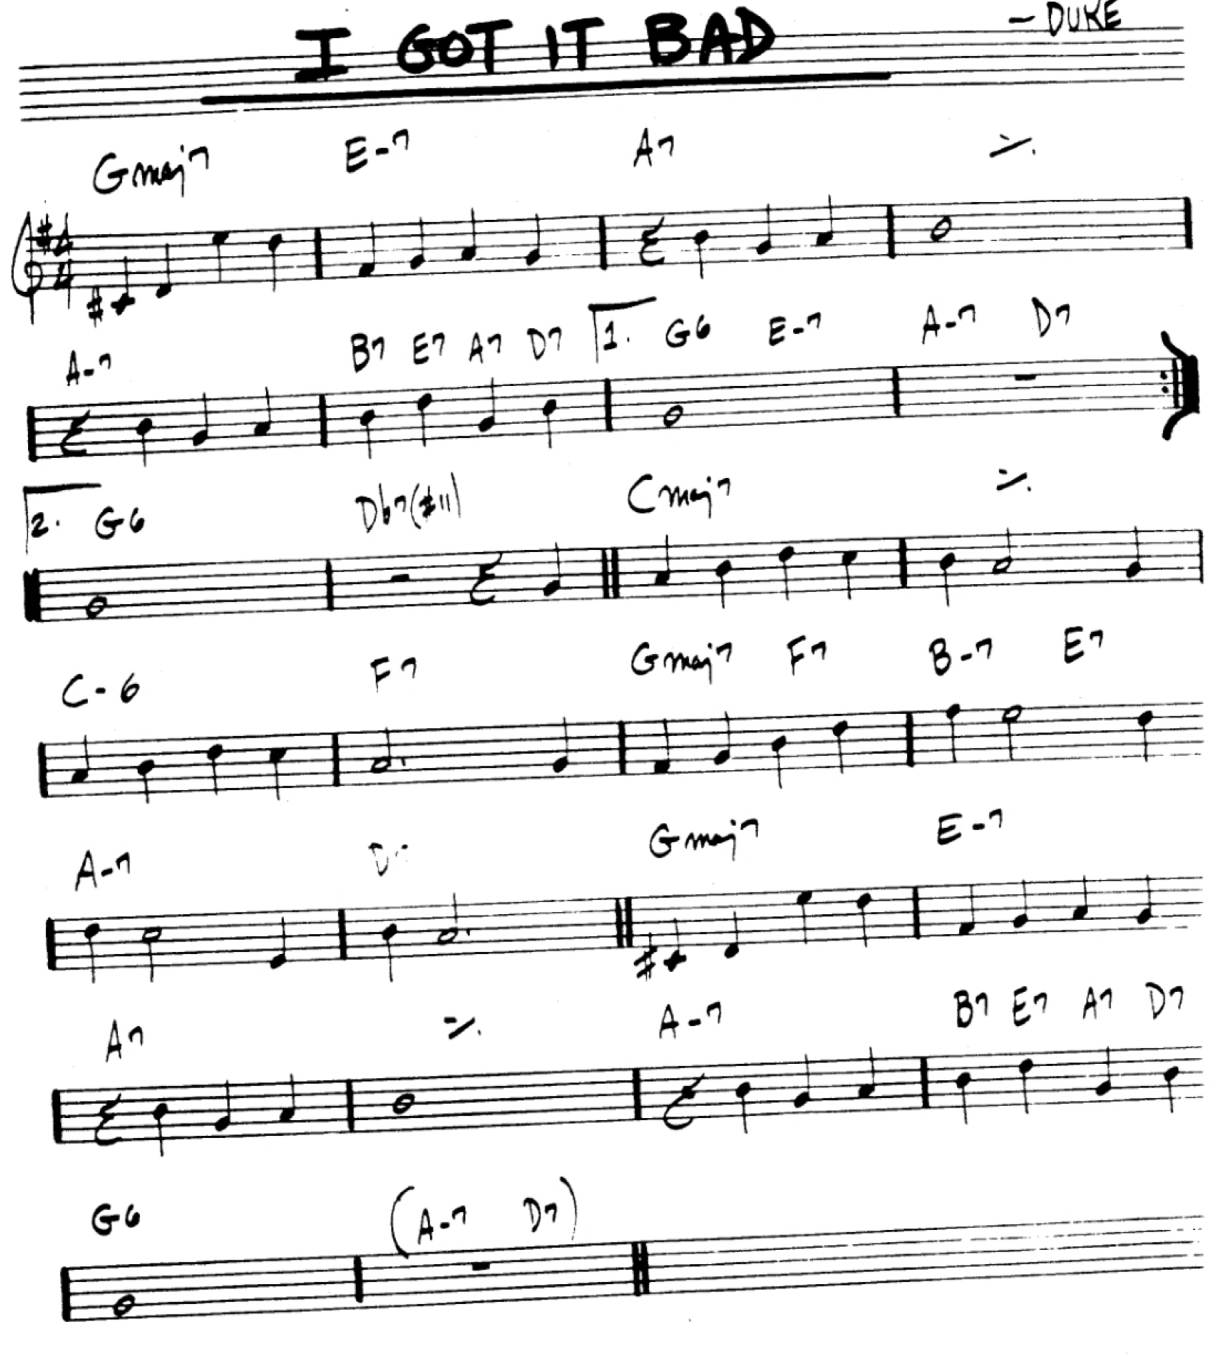 I GOT IT BAD
– DUKE
Gmaj7 E-7 A7 ٪
4 4
A-7 B7 E7 A7 D7 1. G6 E-7 A-7 D7
2. G6 Db7(#11) Cmaj7 ٪
C-6 F7 Gmaj7 F7 B-7 E7
A-7 Gmaj7 E-7
A7 ٪ A-7 B7 E7 A7 D7
G6 (A-7 D7)